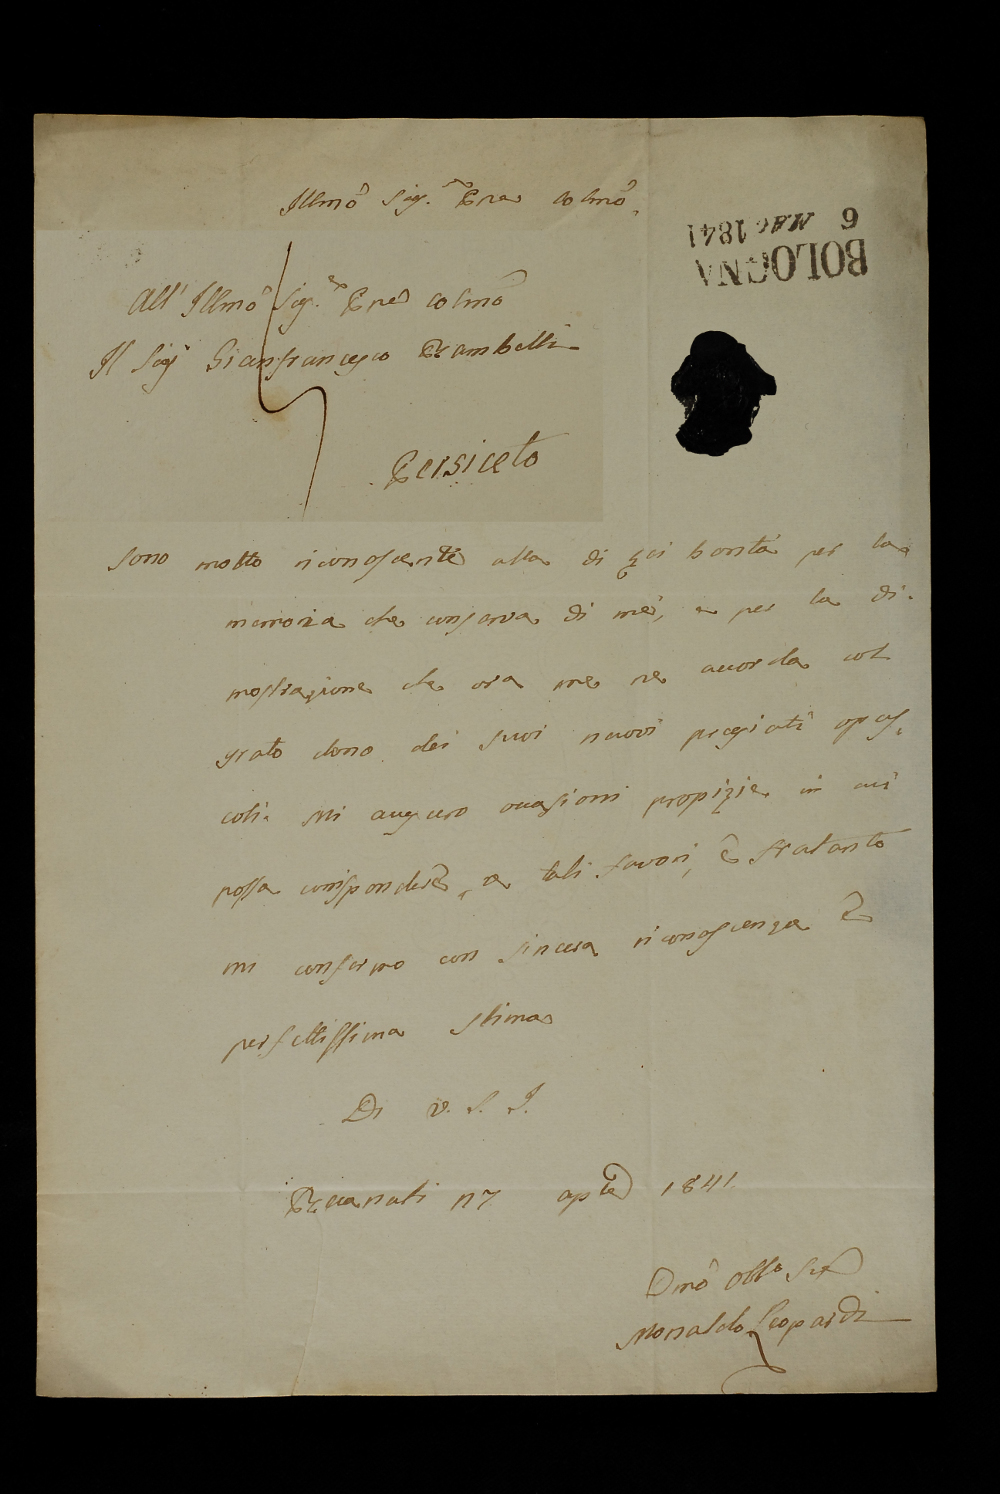 Illmo Sig.r Pne Colmo
6
MAG 1841
BOLOGNA
All' Illmo Sig.r Pne Colmo
Il Sigr Gianfrancesco Rambelli
Persiceto
Sono molto riconoscente alla di Lei bontà per la
memoria che conserva di me, e per la di-
mostrazione che ora me ne accorda col
grato dono dei suoi nuovi pregiati opus-
coli. Mi auguro occasioni propizie in cui
possa corrispondere a tali favori, e fratanto
mi confermo con sincera riconoscenza e
perfettissima stima
Di V. S. I.
Recanati 27 aple 1841
Dmo Obbo Ser
Monaldo Leopardi